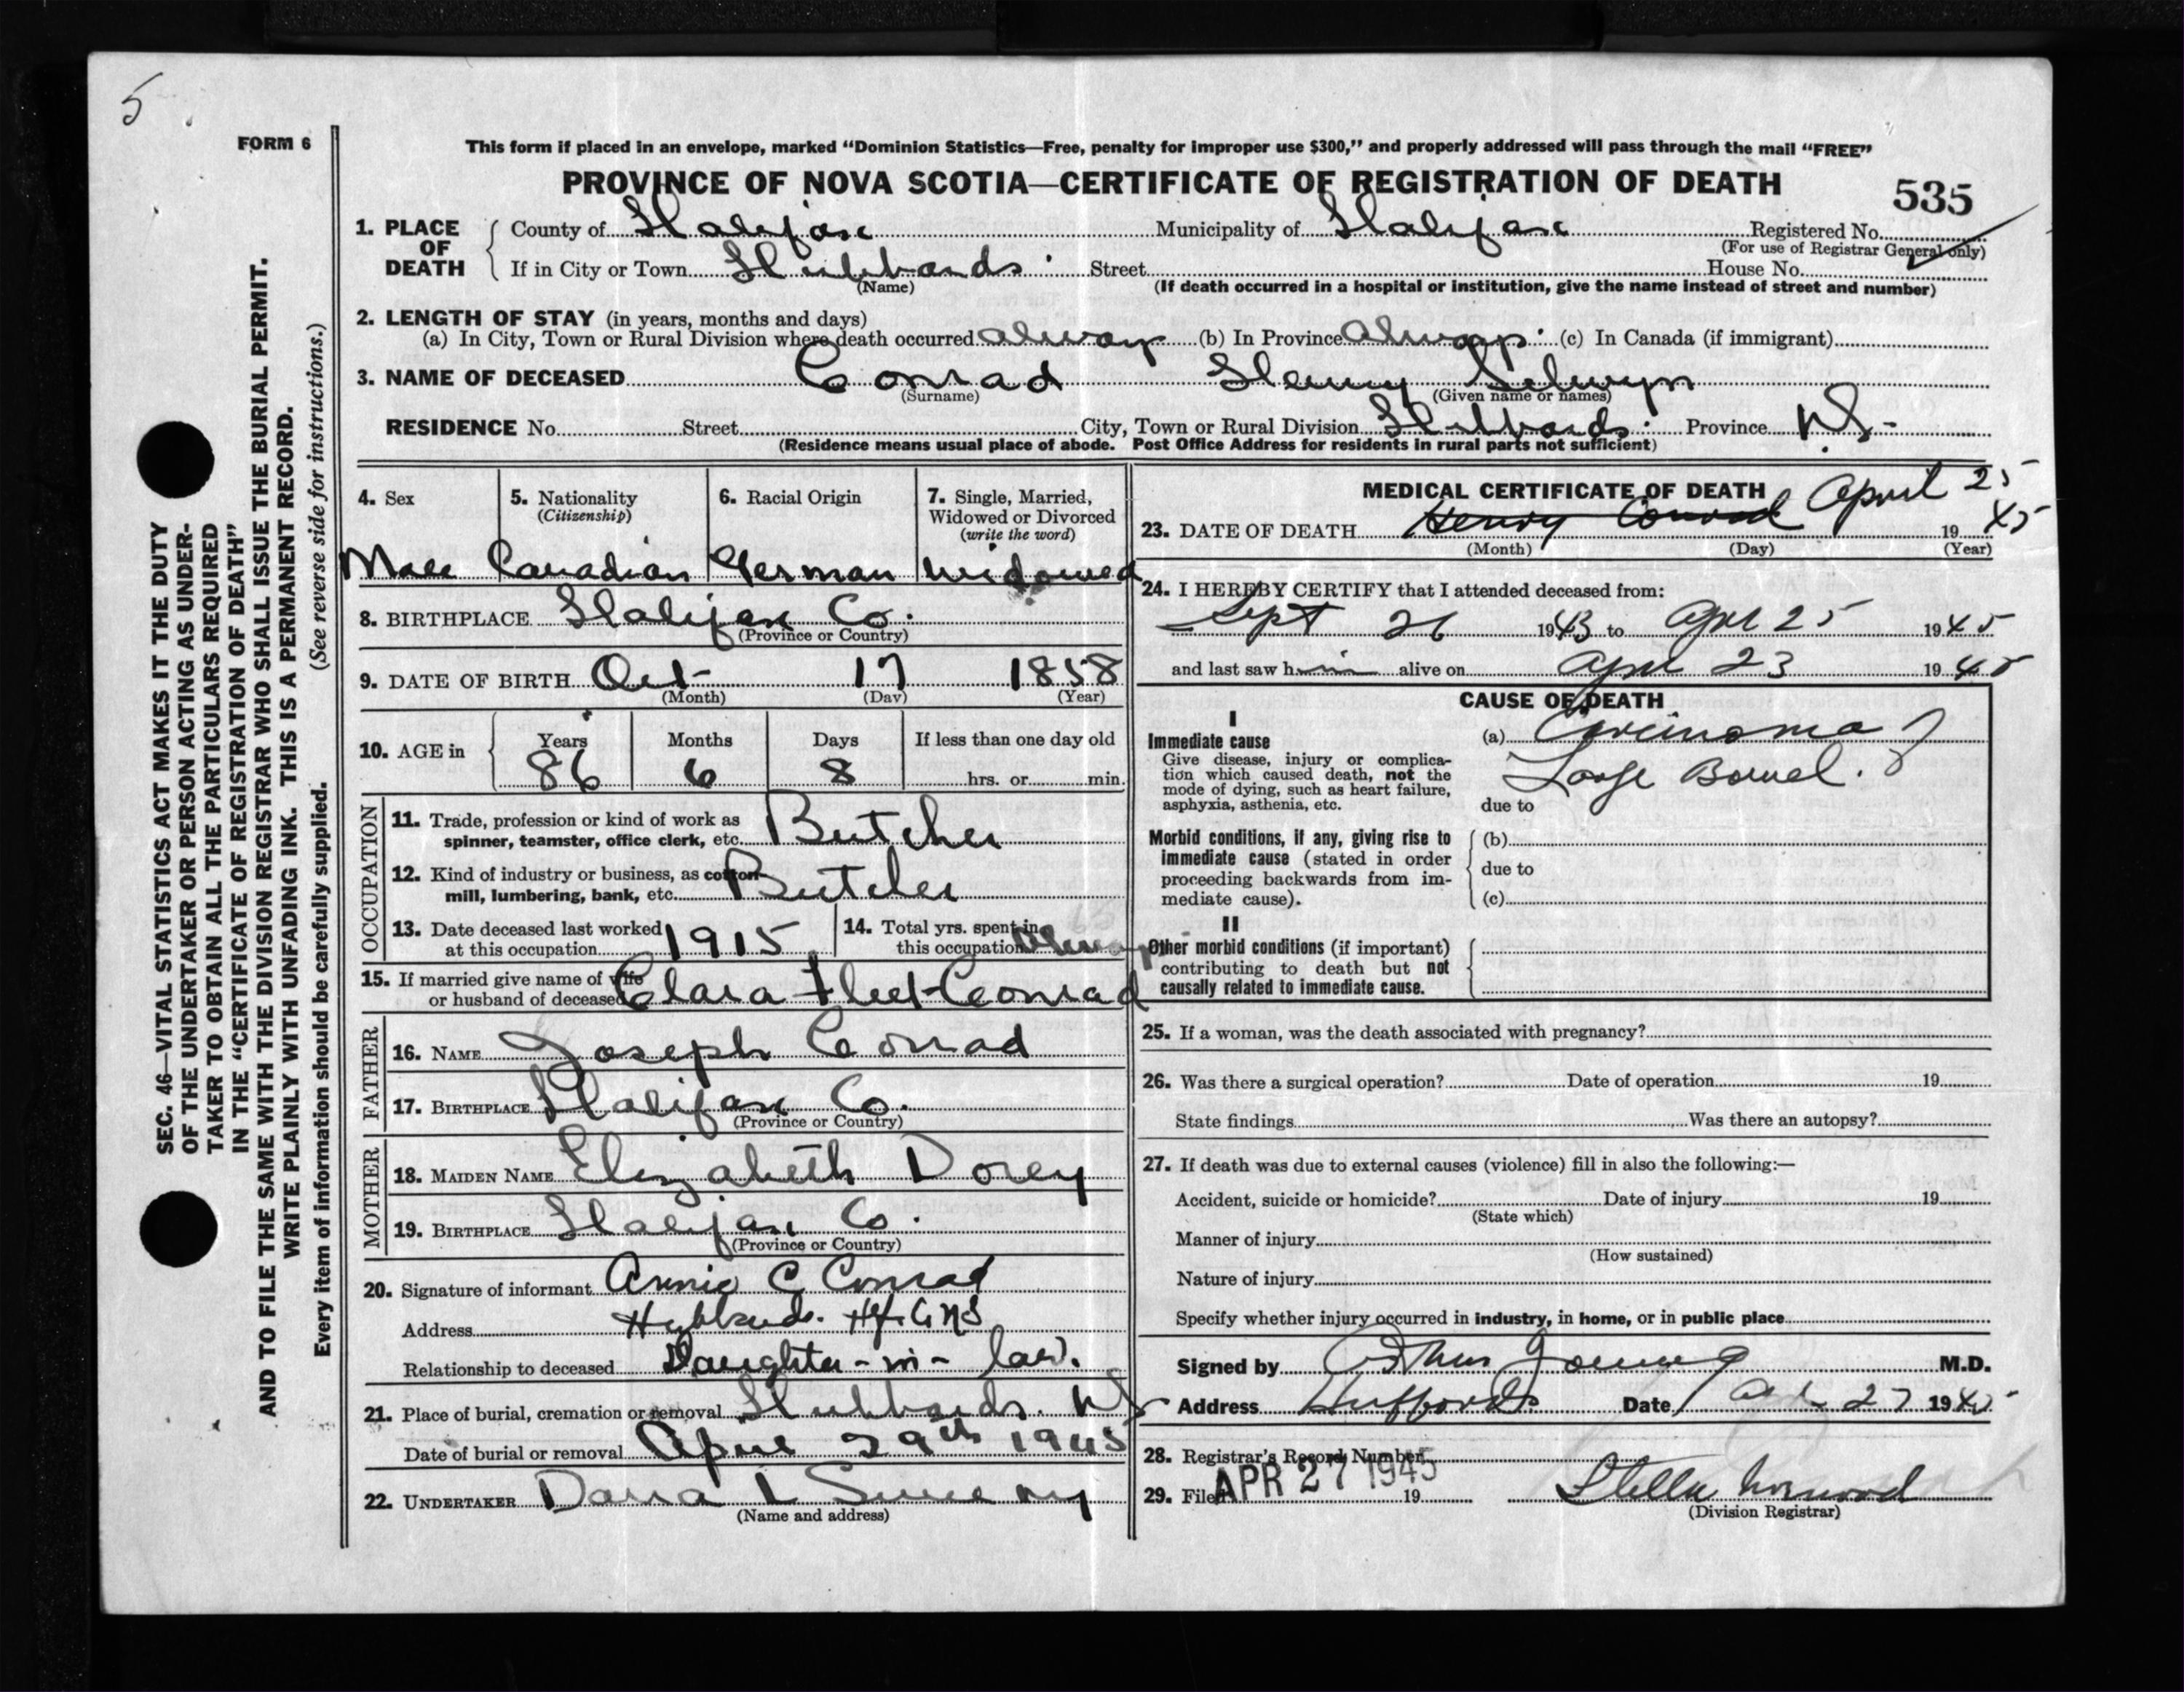 5
FORM 6
This form if placed in an envelope, marked “Dominion Statistics—Free, penalty for improper use $300,” and properly addressed will pass through the mail “FREE”
PROVINCE OF NOVA SCOTIA—CERTIFICATE OF REGISTRATION OF DEATH
535
1. PLACE OF DEATH
County of Halifax Municipality of Halifax Registered No.
(For use of Registrar General only)
If in City or Town Hubbards Street House No.
(Name) (If death occurred in a hospital or institution, give the name instead of street and number)
2. LENGTH OF STAY (in years, months and days)
(a) In City, Town or Rural Division where death occurred always (b) In Province Always (c) In Canada (if immigrant)
3. NAME OF DECEASED Conrad Henry Selwyn
(Surname) (Given name or names)
RESIDENCE No. Street City, Town or Rural Division Hubbards Province NS-
(Residence means usual place of abode. Post Office Address for residents in rural parts not sufficient)
SEC. 46—VITAL STATISTICS ACT MAKES IT THE DUTY
OF THE UNDERTAKER OR PERSON ACTING AS UNDER-
TAKER TO OBTAIN ALL THE PARTICULARS REQUIRED
IN THE “CERTIFICATE OF REGISTRATION OF DEATH”
AND TO FILE THE SAME WITH THE DIVISION REGISTRAR WHO SHALL ISSUE THE BURIAL PERMIT.
WRITE PLAINLY WITH UNFADING INK. THIS IS A PERMANENT RECORD.
Every item of information should be carefully supplied. (See reverse side for instructions.)
4. Sex 5. Nationality 6. Racial Origin 7. Single, Married,
(Citizenship) Widowed or Divorced
(write the word)
Male Canadian German Widowed
8. BIRTHPLACE Halifax Co.
(Province or Country)
9. DATE OF BIRTH Oct- 17 1858
(Month) (Day) (Year)
10. AGE in Years Months Days If less than one day old
86 6 8 hrs. or min.
OCCUPATION
11. Trade, profession or kind of work as
spinner, teamster, office clerk, etc. Butcher
12. Kind of industry or business, as cotton-
mill, lumbering, bank, etc. Butcher
13. Date deceased last worked 14. Total yrs. spent in
at this occupation 1915 this occupation
15. If married give name of wife
or husband of deceased Clara Fleet Conrad
FATHER
16. NAME Joseph Conrad
17. BIRTHPLACE Halifax Co.
(Province or Country)
MOTHER
18. MAIDEN NAME Elizabeth Dorey
19. BIRTHPLACE Halifax Co.
(Province or Country)
20. Signature of informant Annie C Conrad
Address Hubbards. Hfx Co NS
Relationship to deceased Daughter-in-law.
21. Place of burial, cremation or removal Hubbards. NS
Date of burial or removal April 29th 1945
22. UNDERTAKER L Sweeny
(Name and address)
MEDICAL CERTIFICATE OF DEATH
23. DATE OF DEATH Henry Conrad April 25 1945
(Month) (Day) (Year)
24. I HEREBY CERTIFY that I attended deceased from:
Sept 26 1943 to April 25 1945
and last saw him alive on April 23 1945
CAUSE OF DEATH
I
Immediate cause (a) Carcinoma of
Give disease, injury or complica-
tion which caused death, not the Large Bowel.
mode of dying, such as heart failure,
asphyxia, asthenia, etc. due to
Morbid conditions, if any, giving rise to (b)
immediate cause (stated in order
proceeding backwards from im- due to
mediate cause). (c)
II
Other morbid conditions (if important)
contributing to death but not
causally related to immediate cause.
25. If a woman, was the death associated with pregnancy?
26. Was there a surgical operation? Date of operation 19
State findings Was there an autopsy?
27. If death was due to external causes (violence) fill in also the following:—
Accident, suicide or homicide? Date of injury 19
(State which)
Manner of injury
(How sustained)
Nature of injury
Specify whether injury occurred in industry, in home, or in public place
Signed by Arthur Young M.D.
Address Date 27 1945
28. Registrar's Record Number
29. Filed APR 27 1945 19 Stella
(Division Registrar)